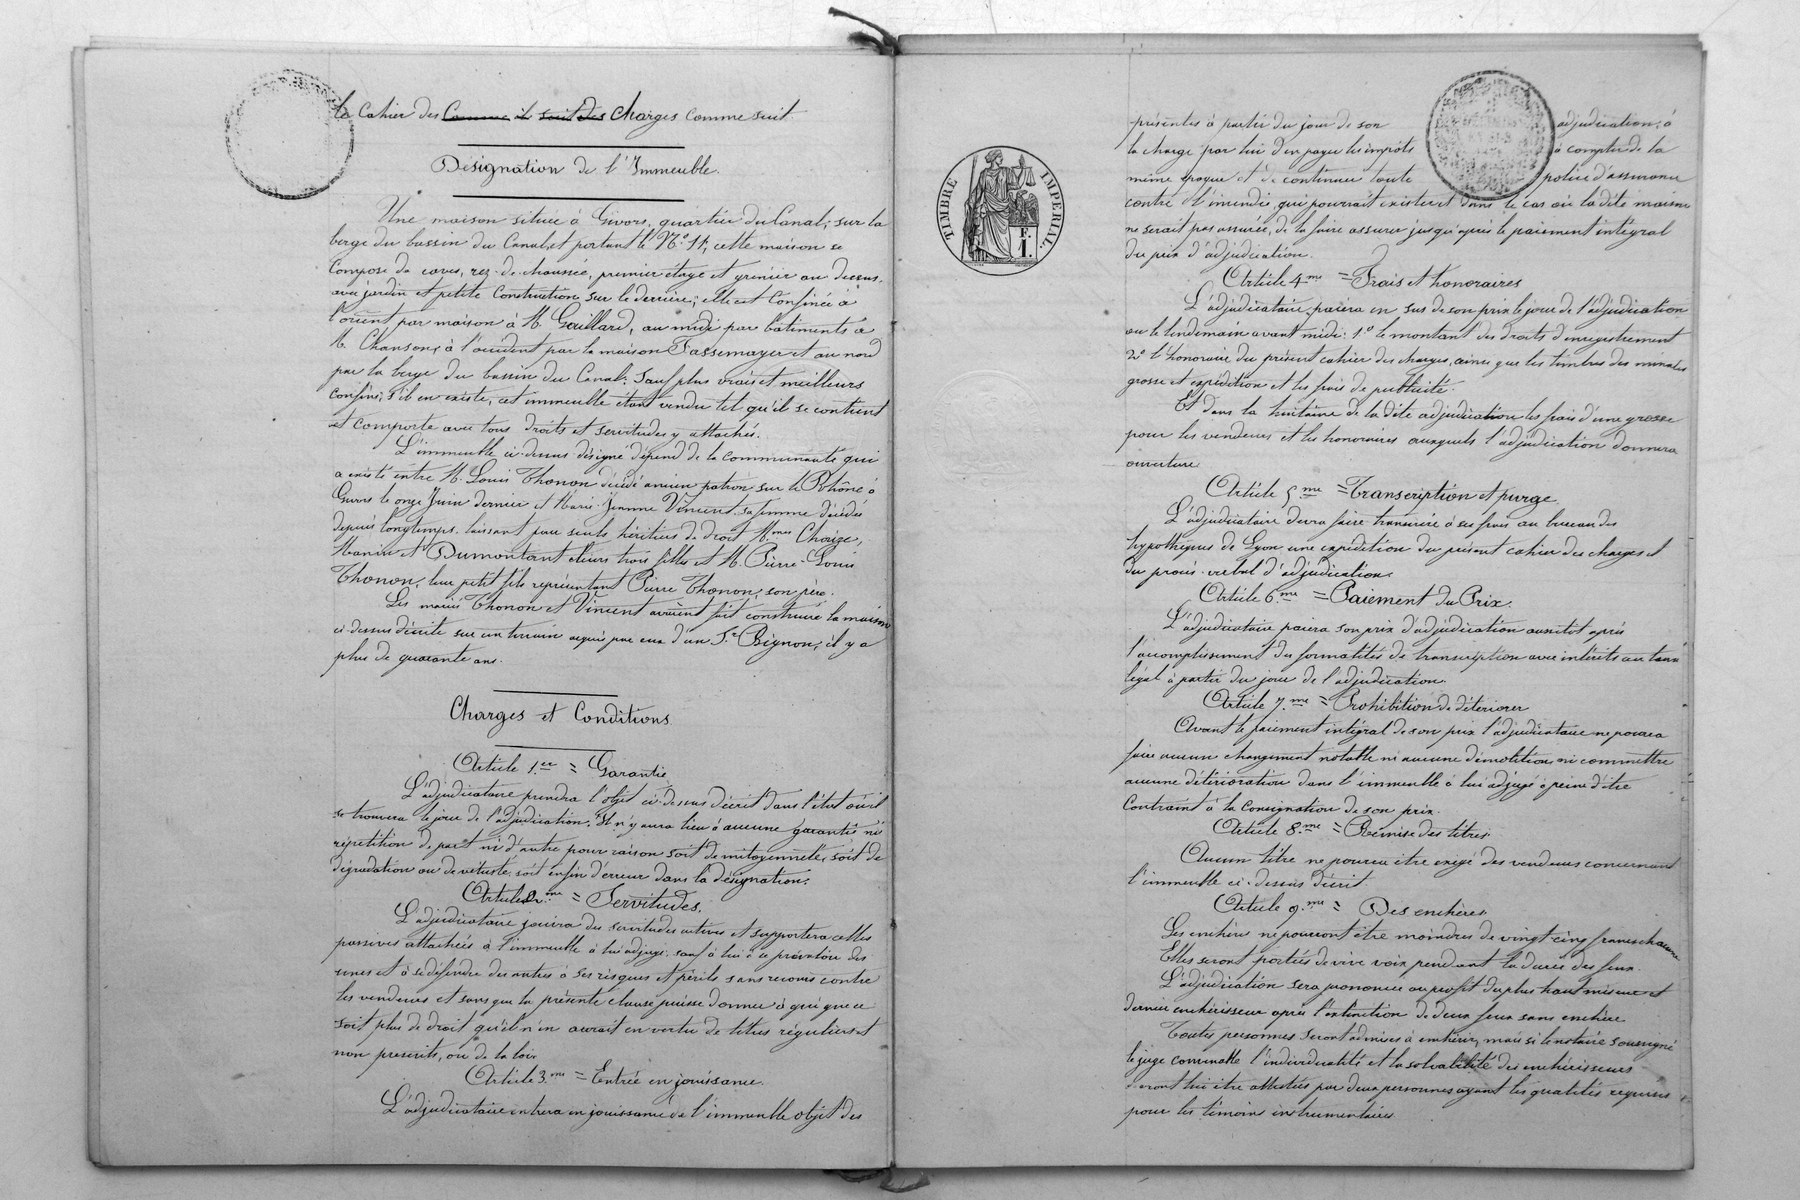 le Cahier des Comme il suit des Charges comme suit
Désignation de l'Immeuble.
Une maison située à Givors, quartier du Canal, sur la
berge du bassin du Canal, et portant le N.o 11, cette maison se
compose de caves, rez-de-chaussée, premier étage et grenier au dessus,
avec jardin et petite construction sur le derrière; elle est confinée à
l'orient par maison à M. Gaillard, au midi par bâtiments à
M. Chanson, à l'occident par la maison Fassemayer et au nord
par la berge du bassin du Canal. Sauf plus vrais et meilleurs
confins, s'il en existe, cet immeuble étant vendu tel qu'il se contient
et comporte avec tous droits et servitudes y attachés.
L'immeuble ci-dessus désigné dépend de la communauté qui
a existé entre M. Louis Thonon décédé ancien patron sur le Rhône à
Givors le onze Juin dernier et Marie-Jeanne Vincent sa femme décédée
depuis longtemps, laissant pour seuls héritiers de droit M.mes Choize,
Manin et Dumontant leurs trois filles et M. Pierre-Louis
Thonon, leur petit fils représentant Pierre Thonon, son père.
Les mariés Thonon et Vincent avaient fait construire la maison
ci-dessus décrite sur un terrain acquis par eux d'un S.r Bignon, il y a
plus de quarante ans.
Charges et Conditions
Article 1.er = Garantie
L'adjudicataire prendra l'objet ci-dessus décrit dans l'état où il
se trouvera le jour de l'adjudication. Il n'y aura lieu à aucune garantie ni
répétition de part ni d'autre pour raison soit de mitoyenneté, soit de
dégradation ou de vétusté, soit enfin d'erreur dans la désignation.
Article 2.me = Servitudes.
L'adjudicataire jouira des servitudes actives et supportera celles
passives attachées à l'immeuble à lui adjugé, sauf à lui à se prévaloir des
unes et à se défendre des autres à ses risques et périls sans recours contre
les vendeurs et sans que la présente clause puisse donner à qui que ce
soit plus de droit qu'il n'en aurait en vertu de titres réguliers et
non prescrits, ou de la loi.
Article 3.me = Entrée en jouissance.
L'adjudicataire entrera en jouissance de l'immeuble objet des
TIMBRE IMPERIAL.
F.
1.
présentes à partir du jour de son adjudication, à
la charge par lui d'en payer les impôts à compter de la
même époque et de continuer toute police d'assurance
contre l'incendie qui pourrait exister et dans le cas où la dite maison
ne serait pas assurée, de la faire assurer jusqu'après le paiement intégral
du prix d'adjudication.
Article 4.me = Frais et honoraires
L'adjudicataire paiera en sus de son prix le jour de l'adjudication
ou le lendemain avant midi: 1.o le montant des droits d'enregistrement
2.o l'honoraire du présent cahier des charges, ainsi que les timbres des minutes
grosse et expédition et les frais de publicité.
Et dans la huitaine de la dite adjudication les frais d'une grosse
pour les vendeurs et les honoraires auxquels l'adjudication donnera
ouverture
Article 5.me = Transcription et purge
L'adjudicataire devra faire transcrire à ses frais au bureau des
hypothèques de Lyon une expédition du présent cahier des charges et
du procès-verbal d'adjudication.
Article 6.me = Paiement du Prix.
L'adjudicataire paiera son prix d'adjudication aussitôt après
l'accomplissement des formalités de transcription avec intérêts au taux
légal à partir du jour de l'adjudication.
Article 7.me = Prohibition de détériorer
Avant le paiement intégral de son prix l'adjudicataire ne pourra
faire aucun changement notable ni aucune démolition, ni commettre
aucune détérioration dans l'immeuble à lui adjugé à peine d'être
contraint à la consignation de son prix.
Article 8.me = Remise des titres.
Aucun titre ne pourra être exigé des vendeurs concernant
l'immeuble ci-dessus décrit
Article 9.me = Des enchères.
Les enchères ne pourront être moindres de vingt-cinq francs chacune
Elles seront portées de vive voix pendant la durée des feux.
L'adjudication sera prononcée au profit du plus haut miseur et
dernier enchérisseur après l'extinction de deux feux sans enchère
Toutes personnes seront admises à enchérir, mais si le notaire soussigné
le juge convenable l'individualité et la solvabilité des enchérisseurs
devront lui être attestées par deux personnes ayant les qualités requises
pour les témoins instrumentaires